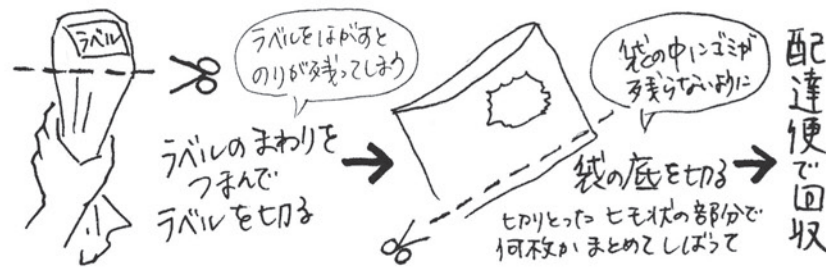 ラベル
ラベルをはがすと
のりが残ってしまう
ラベルのまわりを
つまんで
ラベルを切る
袋の中にゴミが
残らないように
袋の底を切る
切りとった ヒモ状の部分で
何枚か まとめてしばって
配達便で回収